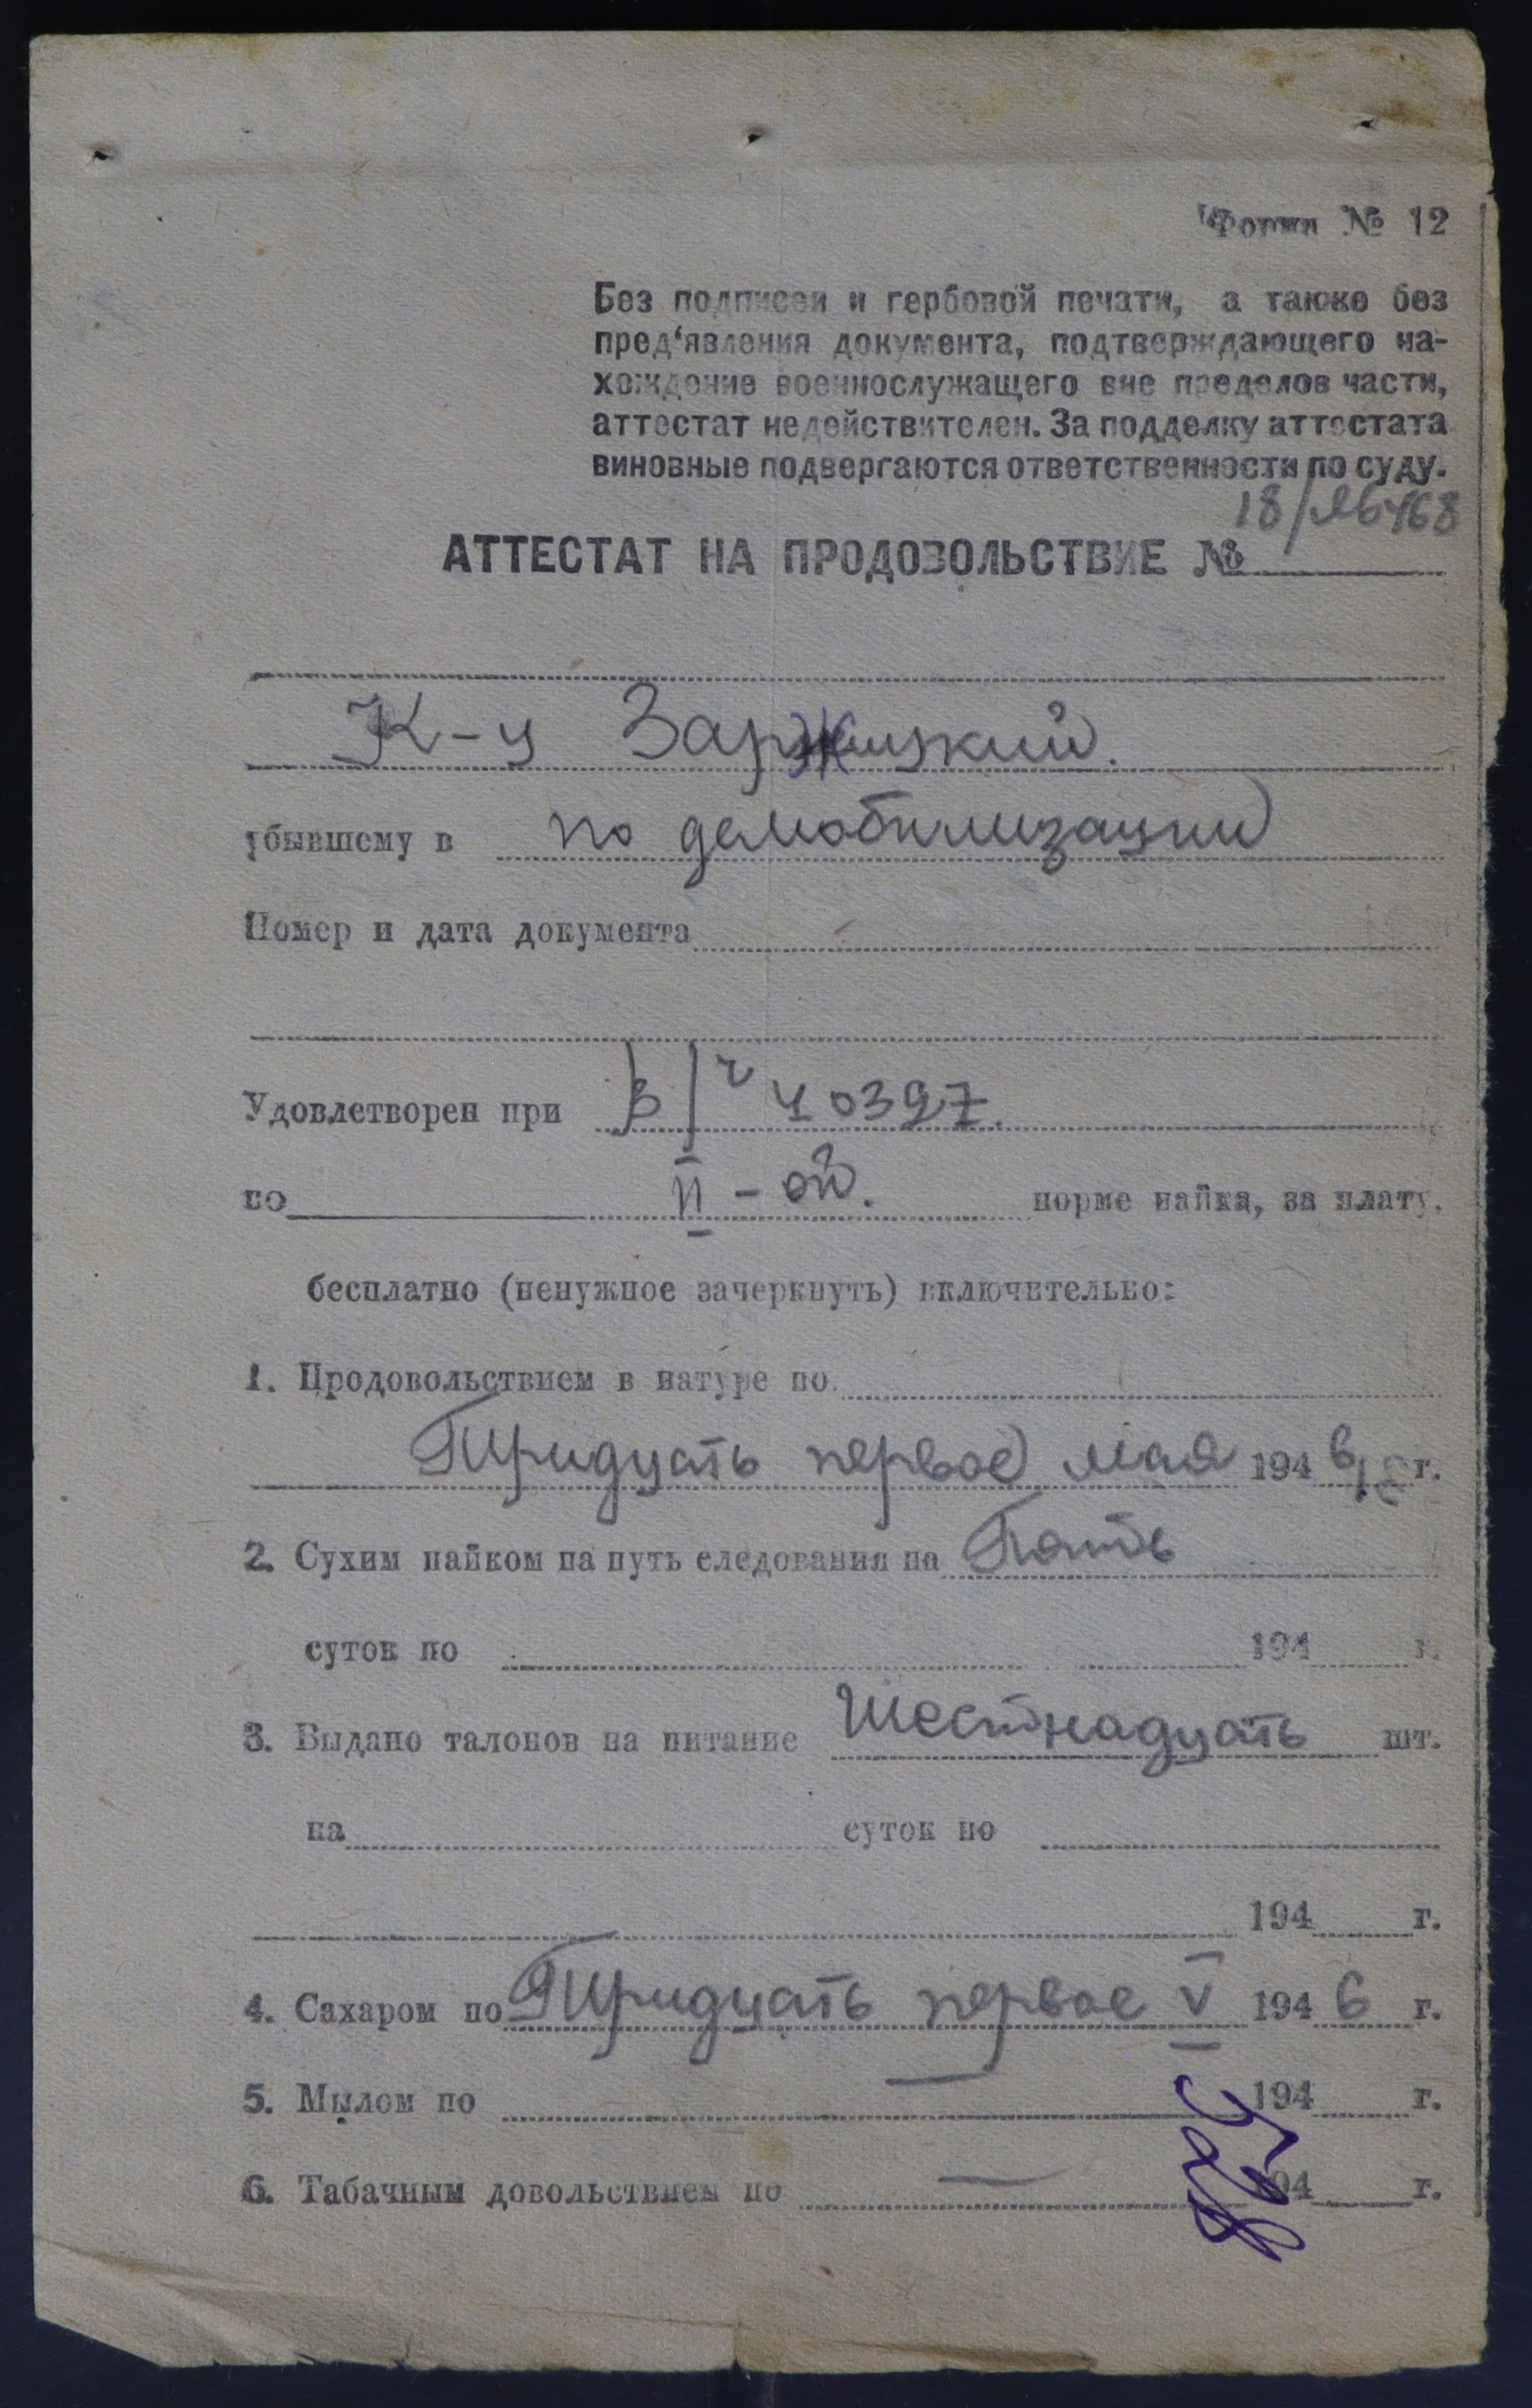 Форма № 12
Без подписей и гербовой печати, а также без
пред‘явления документа, подтверждающего на-
хождение военнослужащего вне пределов части,
аттестат недействителен. За подделку аттестата
виновные подвергаются ответственности по суду.
АТТЕСТАТ НА ПРОДОВОЛЬСТВИЕ №
К-у Заржицкий.
убывшему в по демобилизации
Номер и дата документа
Удовлетворен при в/ч 40397.
по II-ой. норме пайка, за плату,
бесплатно (ненужное зачеркнуть) включительно:
1. Продовольствием в натуре по
Тридцать первое мая 1946 г.
2. Сухим пайком на путь следования на Пять
суток по 194 г.
3. Выдано талонов на питание Шестнадцать шт.
на суток по
194 г.
4. Сахаром по Тридцать первое V 1946 г.
5. Мылом по — 194 г.
6. Табачным довольствием по — 194 г.